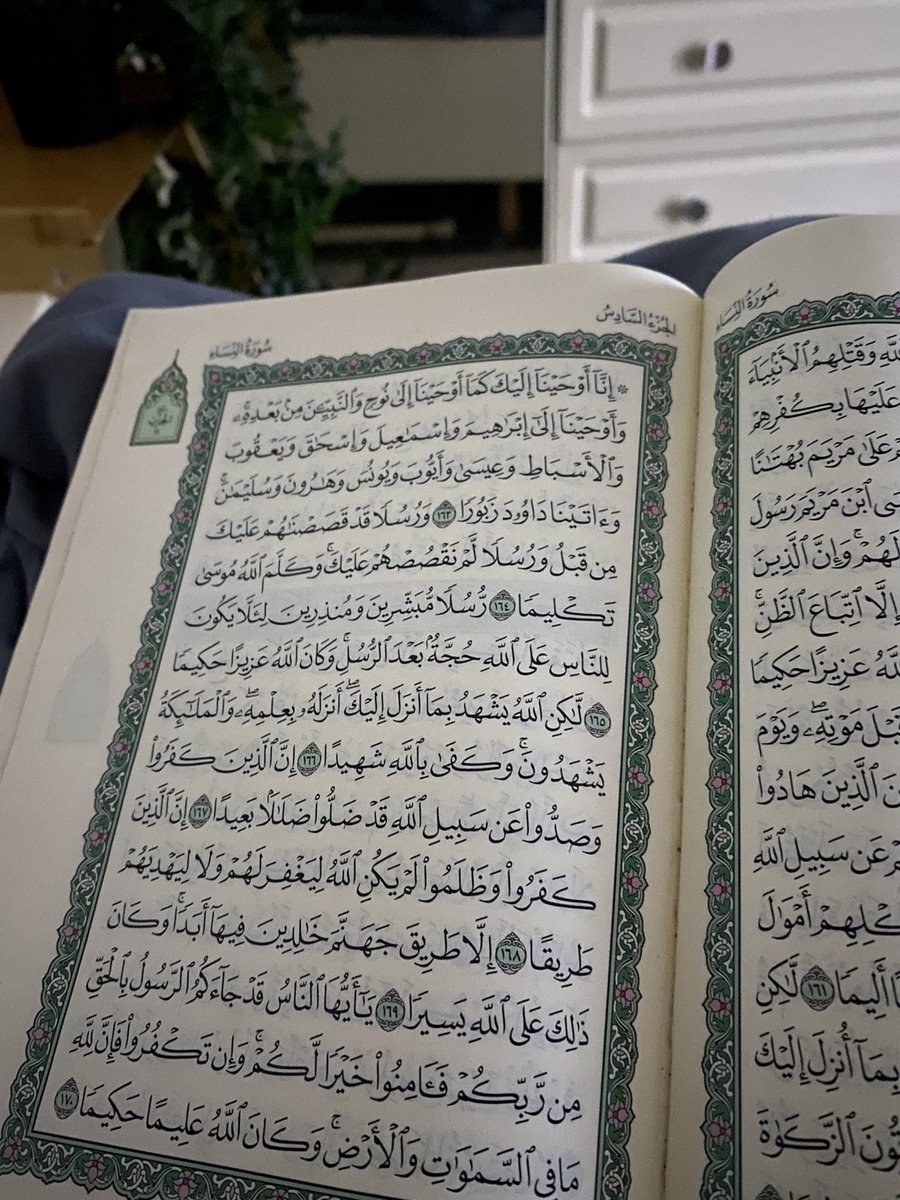 سُورَةُ النِّسَاءِ
وَقَتْلِهِمُ ٱلْأَنۢبِيَآءَ
عَلَيْهَا بِكُفْرِهِمْ
عَلَىٰ مَرْيَمَ بُهْتَٰنًا
ٱبْنَ مَرْيَمَ رَسُولَ
لَهُمْ ۚ وَإِنَّ ٱلَّذِينَ
إِلَّا ٱتِّبَاعَ ٱلظَّنِّ ۚ
عَزِيزًا حَكِيمًا
قَبْلَ مَوْتِهِۦ ۖ وَيَوْمَ
ٱلَّذِينَ هَادُوا۟
عَن سَبِيلِ ٱللَّهِ
أَمْوَٰلَ
أَلِيمًا ١٦١ لَّٰكِنِ
بِمَآ أُنزِلَ إِلَيْكَ
ٱلزَّكَوٰةَ
الجُزْءُ السَّادِسُ سُورَةُ النِّسَاءِ
۞ إِنَّآ أَوْحَيْنَآ إِلَيْكَ كَمَآ أَوْحَيْنَآ إِلَىٰ نُوحٍ وَٱلنَّبِيِّـۧنَ مِنۢ بَعْدِهِۦ ۚ
وَأَوْحَيْنَآ إِلَىٰٓ إِبْرَٰهِيمَ وَإِسْمَٰعِيلَ وَإِسْحَٰقَ وَيَعْقُوبَ
وَٱلْأَسْبَاطِ وَعِيسَىٰ وَأَيُّوبَ وَيُونُسَ وَهَٰرُونَ وَسُلَيْمَٰنَ ۚ
وَءَاتَيْنَا دَاوُۥدَ زَبُورًا ١٦٣ وَرُسُلًا قَدْ قَصَصْنَٰهُمْ عَلَيْكَ
مِن قَبْلُ وَرُسُلًا لَّمْ نَقْصُصْهُمْ عَلَيْكَ ۚ وَكَلَّمَ ٱللَّهُ مُوسَىٰ
تَكْلِيمًا ١٦٤ رُّسُلًا مُّبَشِّرِينَ وَمُنذِرِينَ لِئَلَّا يَكُونَ
لِلنَّاسِ عَلَى ٱللَّهِ حُجَّةٌۢ بَعْدَ ٱلرُّسُلِ ۚ وَكَانَ ٱللَّهُ عَزِيزًا حَكِيمًا
١٦٥ لَّٰكِنِ ٱللَّهُ يَشْهَدُ بِمَآ أَنزَلَ إِلَيْكَ ۖ أَنزَلَهُۥ بِعِلْمِهِۦ ۖ وَٱلْمَلَٰٓئِكَةُ
يَشْهَدُونَ ۚ وَكَفَىٰ بِٱللَّهِ شَهِيدًا ١٦٦ إِنَّ ٱلَّذِينَ كَفَرُوا۟
وَصَدُّوا۟ عَن سَبِيلِ ٱللَّهِ قَدْ ضَلُّوا۟ ضَلَٰلًۢا بَعِيدًا ١٦٧ إِنَّ ٱلَّذِينَ
كَفَرُوا۟ وَظَلَمُوا۟ لَمْ يَكُنِ ٱللَّهُ لِيَغْفِرَ لَهُمْ وَلَا لِيَهْدِيَهُمْ
طَرِيقًا ١٦٨ إِلَّا طَرِيقَ جَهَنَّمَ خَٰلِدِينَ فِيهَآ أَبَدًا ۚ وَكَانَ
ذَٰلِكَ عَلَى ٱللَّهِ يَسِيرًا ١٦٩ يَٰٓأَيُّهَا ٱلنَّاسُ قَدْ جَآءَكُمُ ٱلرَّسُولُ بِٱلْحَقِّ
مِن رَّبِّكُمْ فَـَٔامِنُوا۟ خَيْرًا لَّكُمْ ۚ وَإِن تَكْفُرُوا۟ فَإِنَّ لِلَّهِ
مَا فِى ٱلسَّمَٰوَٰتِ وَٱلْأَرْضِ ۚ وَكَانَ ٱللَّهُ عَلِيمًا حَكِيمًا ١٧٠